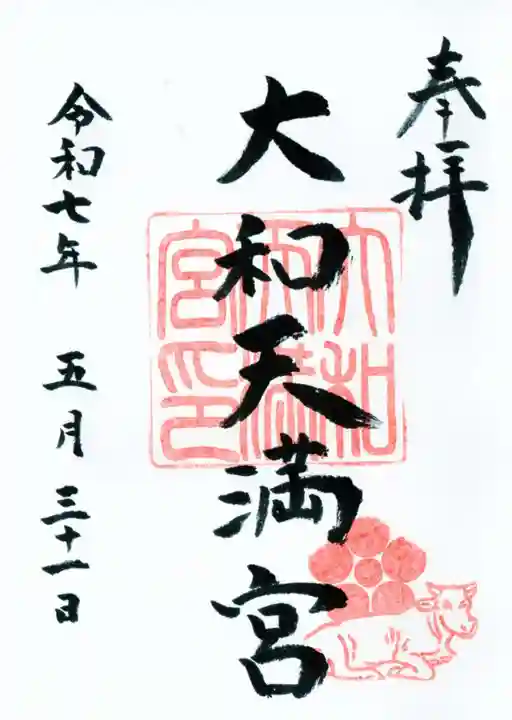 奉拝
大和天満宮
令和七年 五月 三十一日
大和
天満
宮印